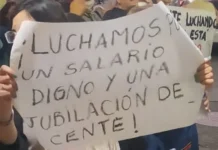 ¡LUCHAMOS
UN SALARIO
DIGNO Y UNA
JUBILACIÓN DE
CENTE!
TE LUCHANDO
ESTÁ